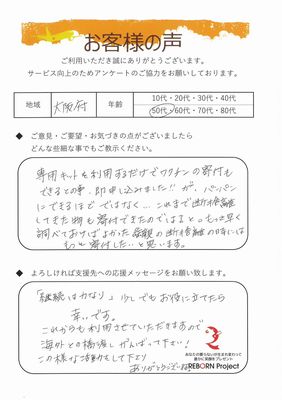 お客様の声
ご利用いただき誠にありがとうございます。
サービス向上のためアンケートのご協力をお願いしております。
地域 大阪府 年齢 10代・20代・30代・40代
50代・60代・70代・80代
◆ ご意見・ご要望・お気づきの点がございましたら
どんな些細な事でもご教示ください。
専用キットを利用するだけでワクチンの寄付も
できるとの事、即申し込みました!! が、パンパン
にできるほどではなく… これまで断捨離
してきた物も寄付できたのでは?と…もっと早く
調べておけばよかった 母親の断捨離の時には
もっと寄付したいと思います。
◆ よろしければ支援先への応援メッセージをお願い致します。
「継続は力なり」少しでもお役に立てたら
幸いです。
これからも利用させていただきますので
海外との橋渡し がんばって下さい!
この様な活動をして下さり
ありがとうございます。
あなたの要らないが生まれ変わって
誰かに笑顔をプレゼント
REBORN Project